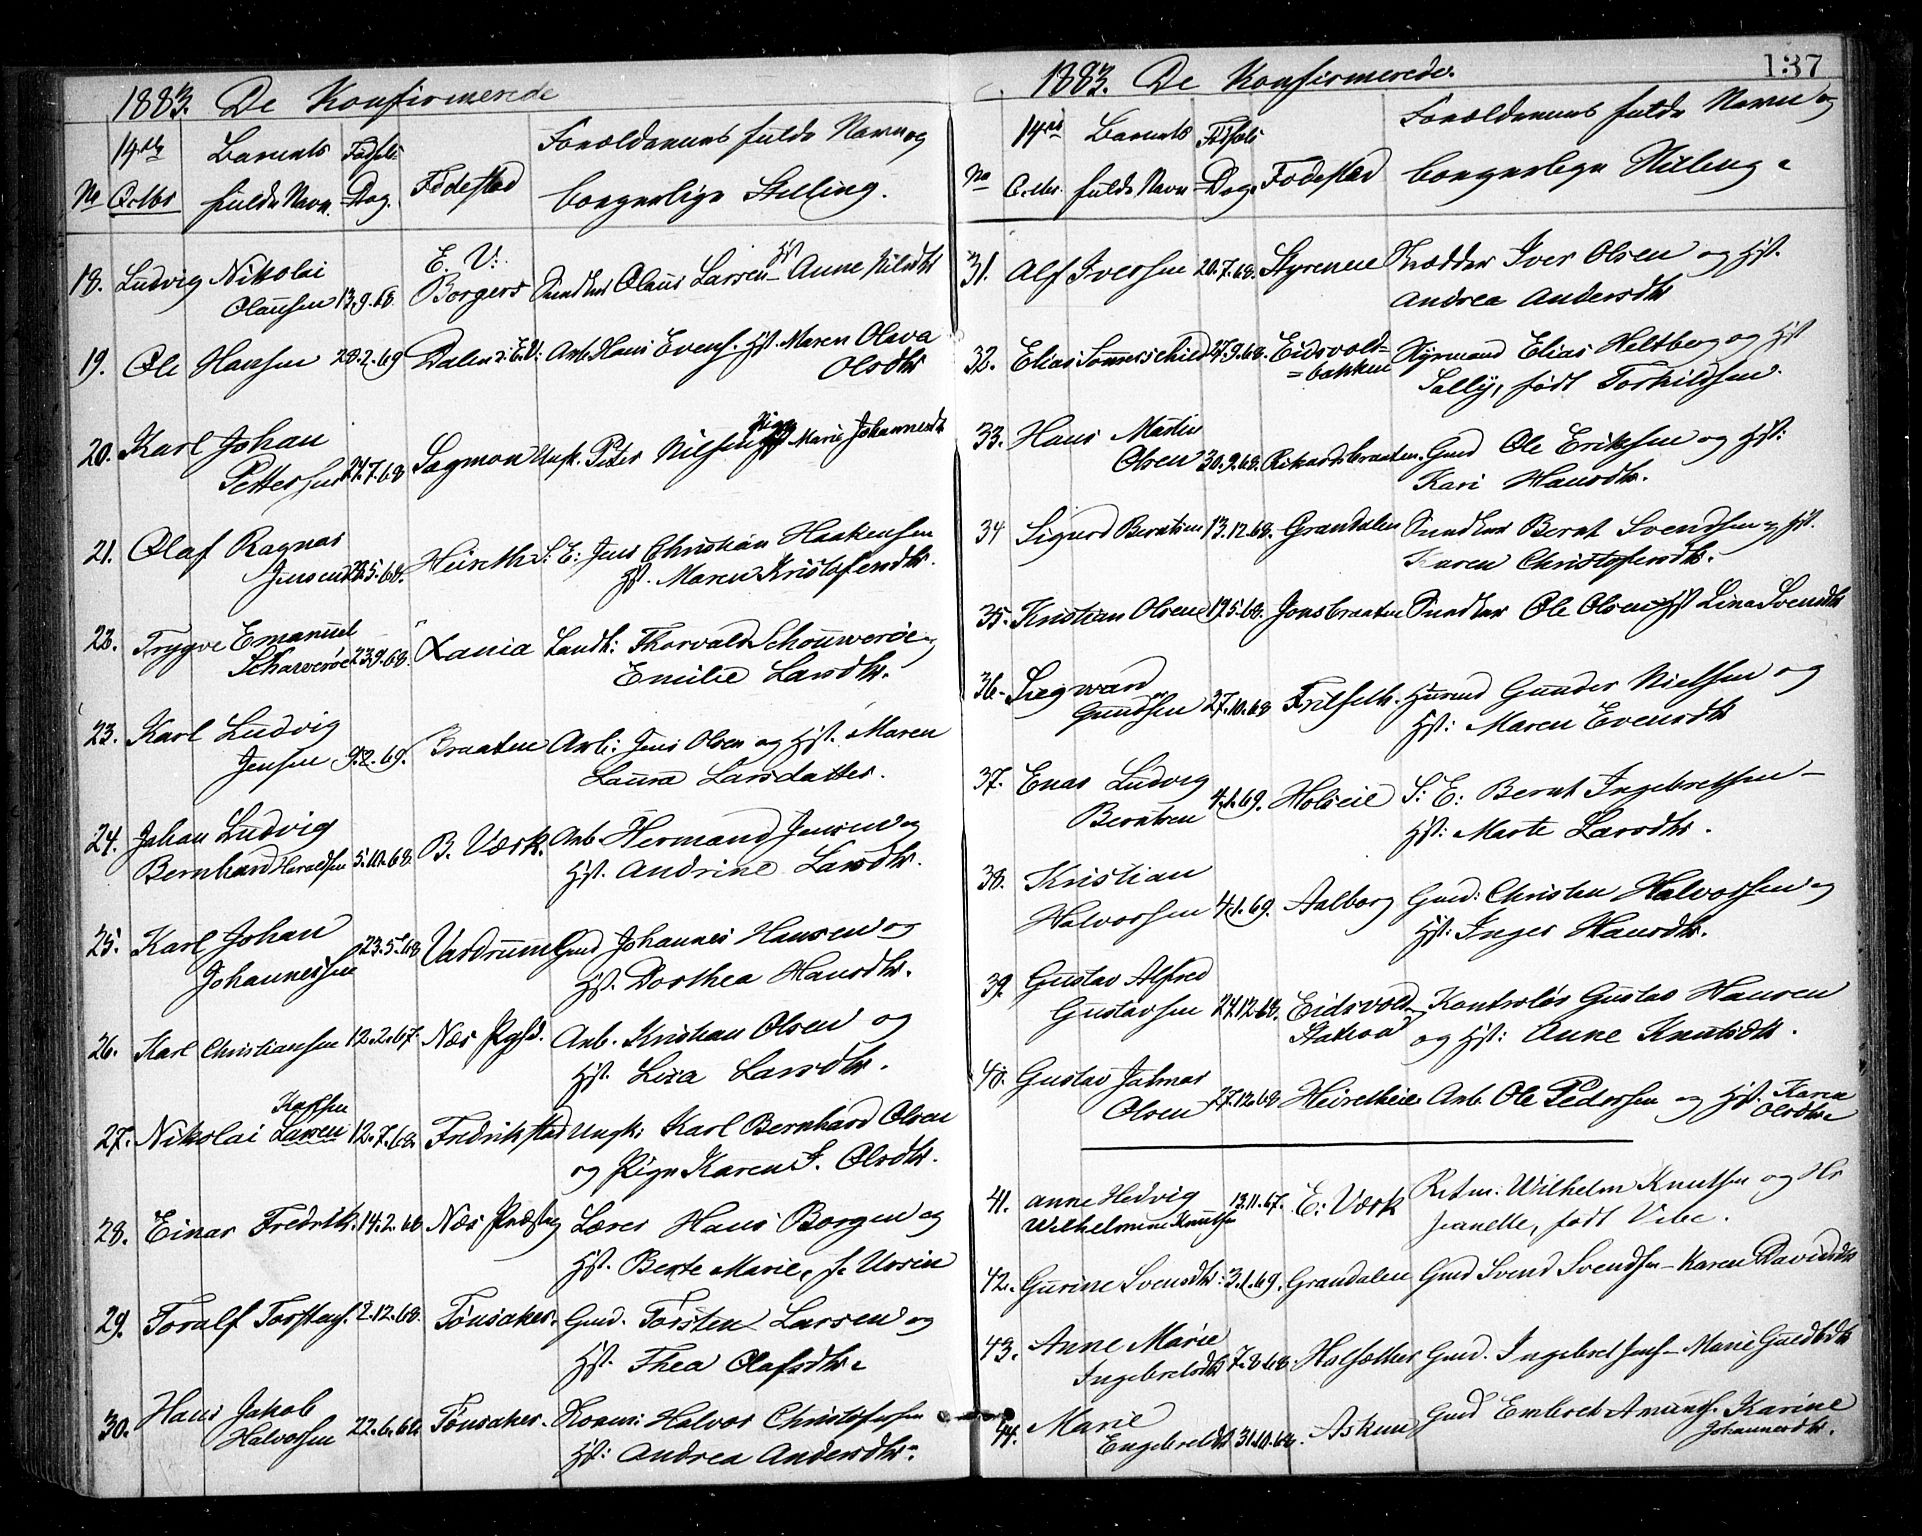 1883. De Konfirmerede
14de Barnets Fødsels Forældrenes fulde Navn og
No Octbr fulde Navn. Dag. Fødested borgerlige Stilling.
18. Ludvig Nikolai E. V. Hst
Olausen 13.9.68 Borgers Olaus Larsen - Anne Nilsdtr
19. Ole Hansen 28.2.69 Dalen i E.V: Arb. Hans Evens. Hst. Maren Olava
Olsdtr
20. Karl Johan Pige
Pettersen 24.7.68 Sagmon Unk. Peter Nilsen Marie Johannesdt
21. Olaf Ragnar
Jensen 23.5.68. Heireth S: E: Jens Christian Haakensen
Hst. Maren Kristofersdtr.
22. Trygve Emanuel
Schouwerøe 23.9.68. Xania Landh: Thorvald Schouwerøe og
Emilie Larsdtr.
23. Karl Ludvig
Jensen 9.2.69. Braaten Arb: Jens Olsen og Hst. Maren
Laura Larsdatter.
24. Johan Ludvig
Bernhard Haraldsen 5.10.68. B. Værk. Arb. Hermand Jensen og
Hst. Andrine Larsdtr.
25. Karl Johan
Johannessen 23.5.68 Vardrum Gmd Johannes Hansen og
Hst. Dorthea Hansdtr.
26. Karl Christiansen 12.2.67. Næs Pgjd. Arb. Kristian Olsen og
Hst. Lisa Larsdtr.
Karlsen
27. Nikolai Larsen 12.7.68. Fredrikstad Ungk: Karl Bernhard Olsen
og Pige Karen J. Olsdtr.
28. Einar Fredrik. 14.2.68 Næs Præstg Lærer Hans Borgen og
Hst. Berte Marie, f. Ursin
29. Toralf Torstens. 2.12.68. Tönsaker. Gmd. Torsten Larsen og
Hst. Thea Olafsdtr.
30. Hans Jakob
Halvorsen 22.6.68. Tönsaker. Halvor Christofersen
Hst: Andrea Andersdtr.
1883. De Konfirmerede. 137
14de Barnets Fødsels Forældrenes fulde Navn og
No Octbr. fulde Navn Dag. Fødested borgerlige Stilling.
31. Alf Iversen 20.7.68. Styrenne Skrædder Iver Olsen og Hst.
Andrea Andersdtr
32. Elias Sommerschield 27.9.68. Eidsvold= Styrmand Elias Heltberg og Hst
=bakken Sally, født Torkildsen.
33. Hans Martin
Olsen 30.9.68. Rikardsbraaten. Gmd Ole Eriksen og Hst:
Kari Hansdtr.
34 Sigurd Berntsen 13.12.68. Grandalen Bernt Svendsen og Hst.
Karen Christofersdtr.
35. Kristian Olsen 19.5.68. Jonsbraaten Ole Olsen Hst Lina Svendtr
36. Sigward
Gundsen 27.10.68 Frilseth. Husmd Gunder Nielsen og
Hst: Maren Evensdtr
37. Enar Ludvig
Berntsen 4.1.69. Holseie S: E: Bernt Ingebretsen -
Hst: Marte Larsdtr.
38. Kristian
Halvorsen 4.1.69. Aalborg Gmd: Christen Halvorsen og
Hst: Inger Hansdtr.
39. Gustav Alfred
Gustavsen 24.12.68. Eidsvold Kontrolør Gustav Hansen
Station og Hst: Anne Knutsdtr.
40. Gustav Jalmar
Olsen 27.12.68 Heiretheie Arb. Ole Pedersen og Hst. Karen
Olsdtr.
41. Anne Hedvig 13.11.67. E: Værk Wilhelm Knutsen og Hr
Wilhelmine Knutsen Jeanette, født Vibe.
42. Gurine Svendsdtr: 3.1.69. Grandalen Gmd Svend Svendsen - Karen Davidsdtr
43. Anne Marie
Ingebretsdtr 7.8.68. Holsæther Gmd. Ingebret Jens - Marie Guldbdtr
44. Marie
Engebretsdtr 31.10.68. Asken Gmd Embret Amunds. Karine
Johannesdtr.